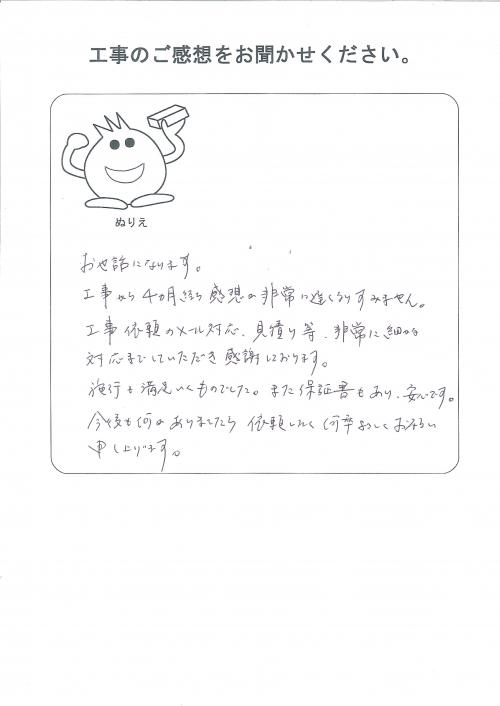 工事のご感想をお聞かせください。
ぬりえ
お世話になります。
工事から4カ月経ち感想の非常に遅くなりすみません。
工事依頼のメール対応、見積り等、非常に細かな
対応までしていただき感謝しております。
施行も満足いくものでした。また保証書もあり、安心です。
今後も何かありましたら依頼したく何卒よろしくお願い
申し上げます。